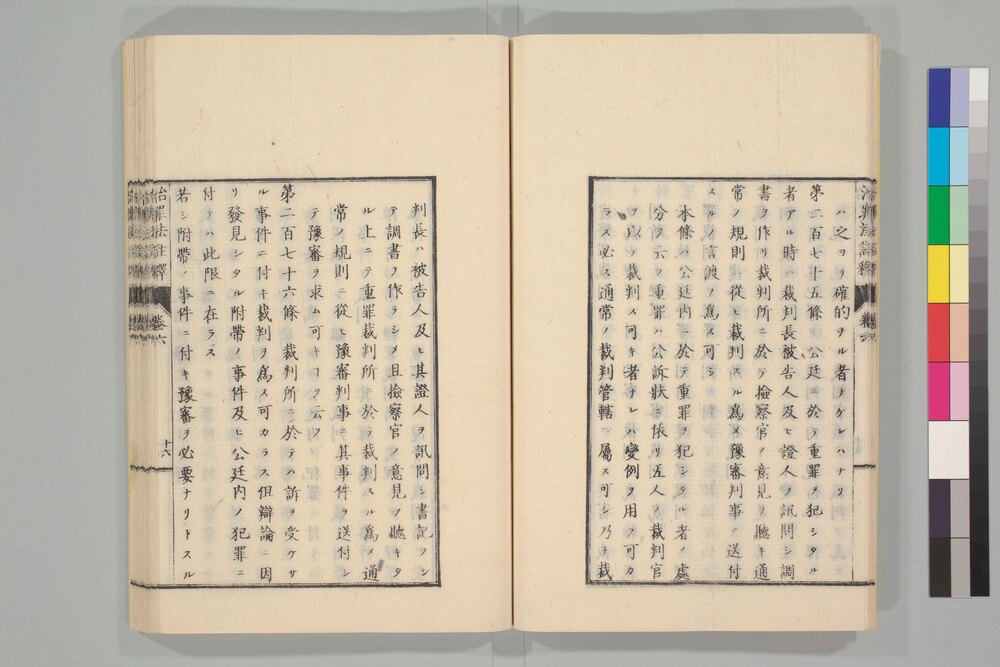 治罪法註釋 卷六
ハ之ヨリ確的ヲル者ナケレハナリ
第二百七十五條 公廷ニ於テ重罪ヲ犯シタル
者アル時ハ裁判長被告人及ヒ證人ヲ訊問シ調
書ヲ作リ裁判所ニ於テ撿察官ノ意見ヲ聽キ通
常ノ規則ニ從ヒ裁判スル爲メ豫審判事ニ送付
スルノ言渡ヲ爲ス可シ
本條ハ公廷内ニ於テ重罪ヲ犯シタル者ノ處
分ヲ云フ重罪ハ公訴狀ニ依リ五人ノ裁判官
ヲ以テ裁判ス可キ者ナレハ變例ヲ用フ可カ
ラス必ス通常ノ裁判管轄ニ屬ス可シ乃チ裁
判長ハ被告人及ヒ其證人ヲ訊問シ書記ヲシ
テ調書ヲ作ラシメ且撿察官ノ意見ヲ聽キタ
ル上ニテ重罪裁判所ニ於テ裁判スル爲メ通
常ノ規則ニ從ヒ豫審判事ニ其事件ヲ送付シ
テ豫審ヲ求ム可キヿヲ云フ
第二百七十六條 裁判所ニ於テハ訴ヲ受ケサ
ル事件ニ付キ裁判ヲ爲ス可カラス但辯論ニ因
リ發見シタル附帶ノ事件及ヒ公廷内ノ犯罪ニ
付テハ此限ニ在ラス
若シ附帶ノ事件ニ付キ豫審ヲ必要ナリトスル
治罪法註釋 卷六 十六